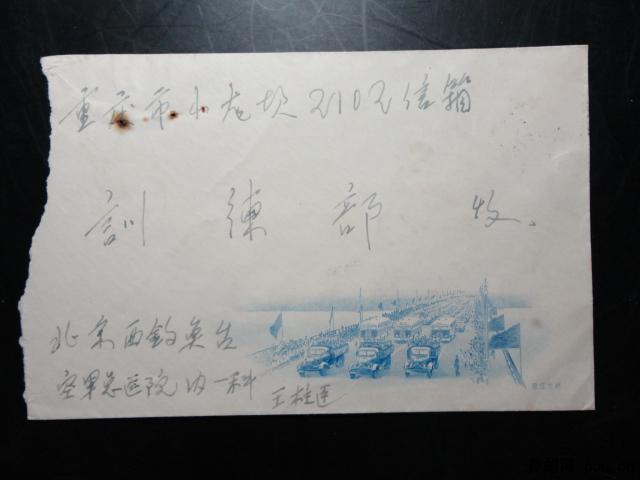 重庆市小龙坎2102信箱
訓練部收
北京西釣魚台
空軍总医院内一科 王桂臣